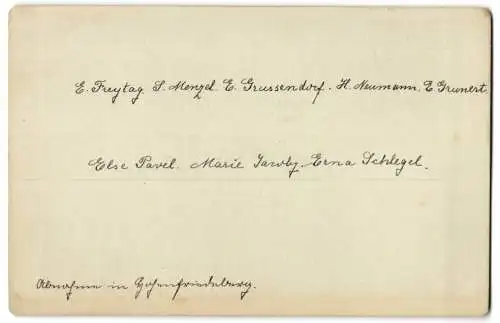 E. Freytag. S. Menzel. E. Grussendorf. H. Neumann. E. Grunert.
Else Pavel. Marie Jacoby. Erna Schlegel.
Abnahme in Hohenfriedeberg.